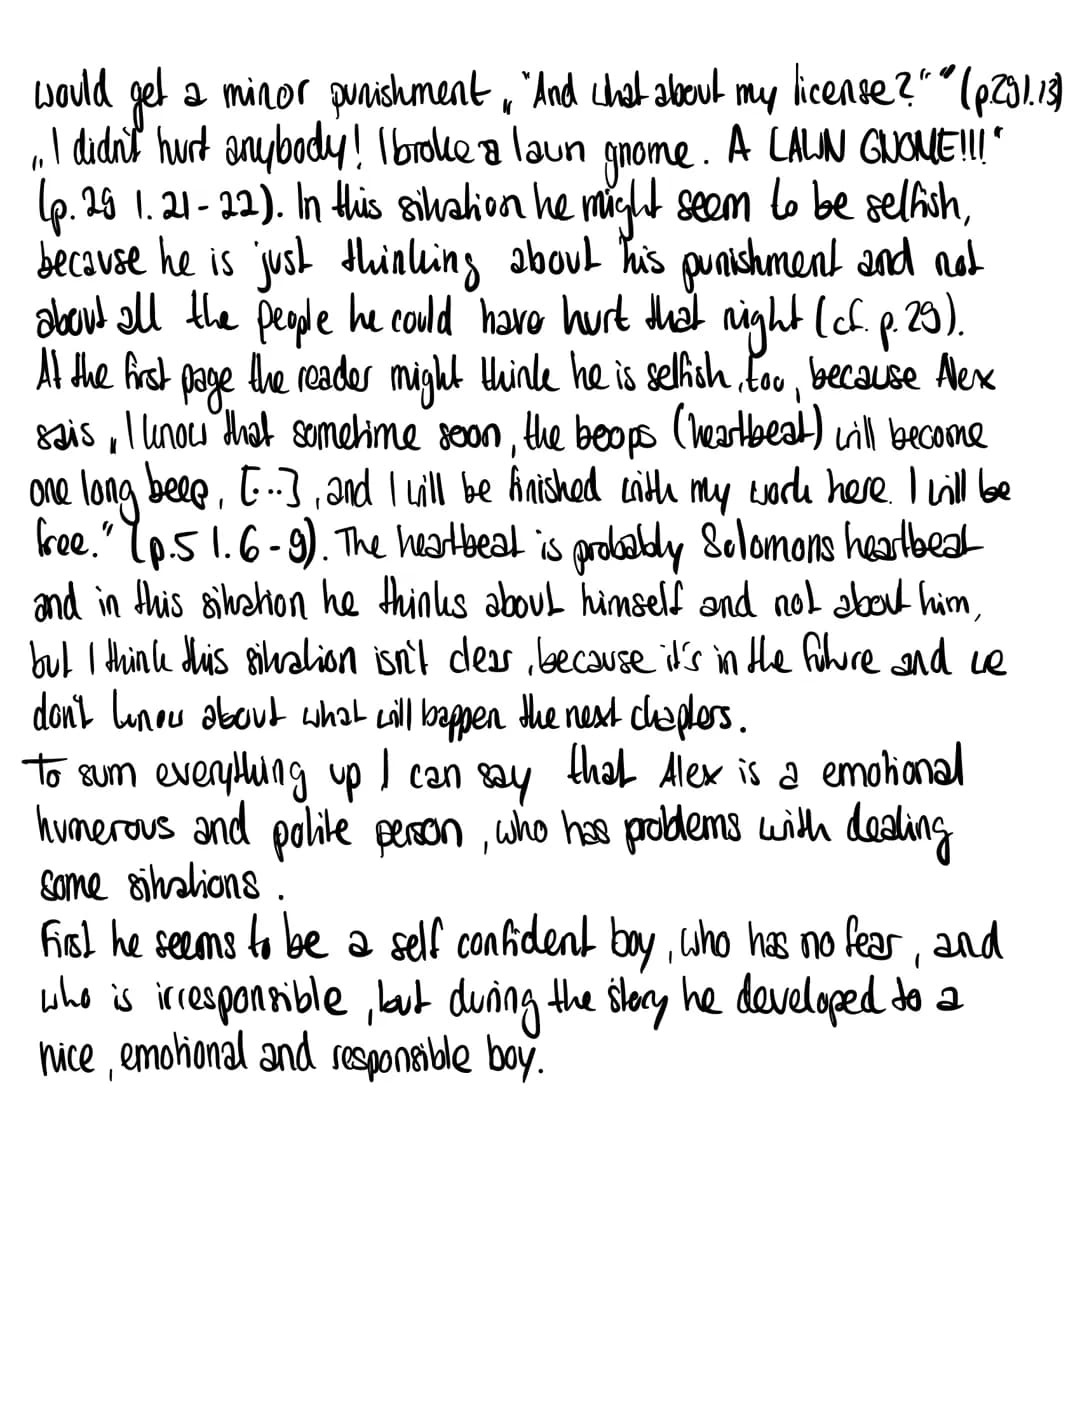 would get a minor punishment „"And what about my license?"" (p.29 l.13)
„I didn't hurt anybody! I broke a lawn gnome. A LAWN GNOME!!!"
(p. 29 l. 21 - 22). In this situation he might seem to be selfish,
because he is just thinking about his punishment and not
about all the people he could have hurt that night (cf. p. 29).
At the first page the reader might think he is selfish, too, because Alex
sais „I know that sometime soon, the beeps (heartbeat) will become
one long beep, [...], and I will be finished with my work here. I will be
free." (p.5 l. 6 - 9). The heartbeat is probably Solomons heartbeat
and in this situation he thinks about himself and not about him,
but I think this situation isn't clear, because it's in the future and we
don't know about what will happen the next chapters.
To sum everything up I can say that Alex is a emotional
humerous and polite person, who has problems with dealing
some situations.
First he seems to be a self confident boy, who has no fear, and
who is irresponsible, but during the story he developed to a
nice, emotional and responsible boy.